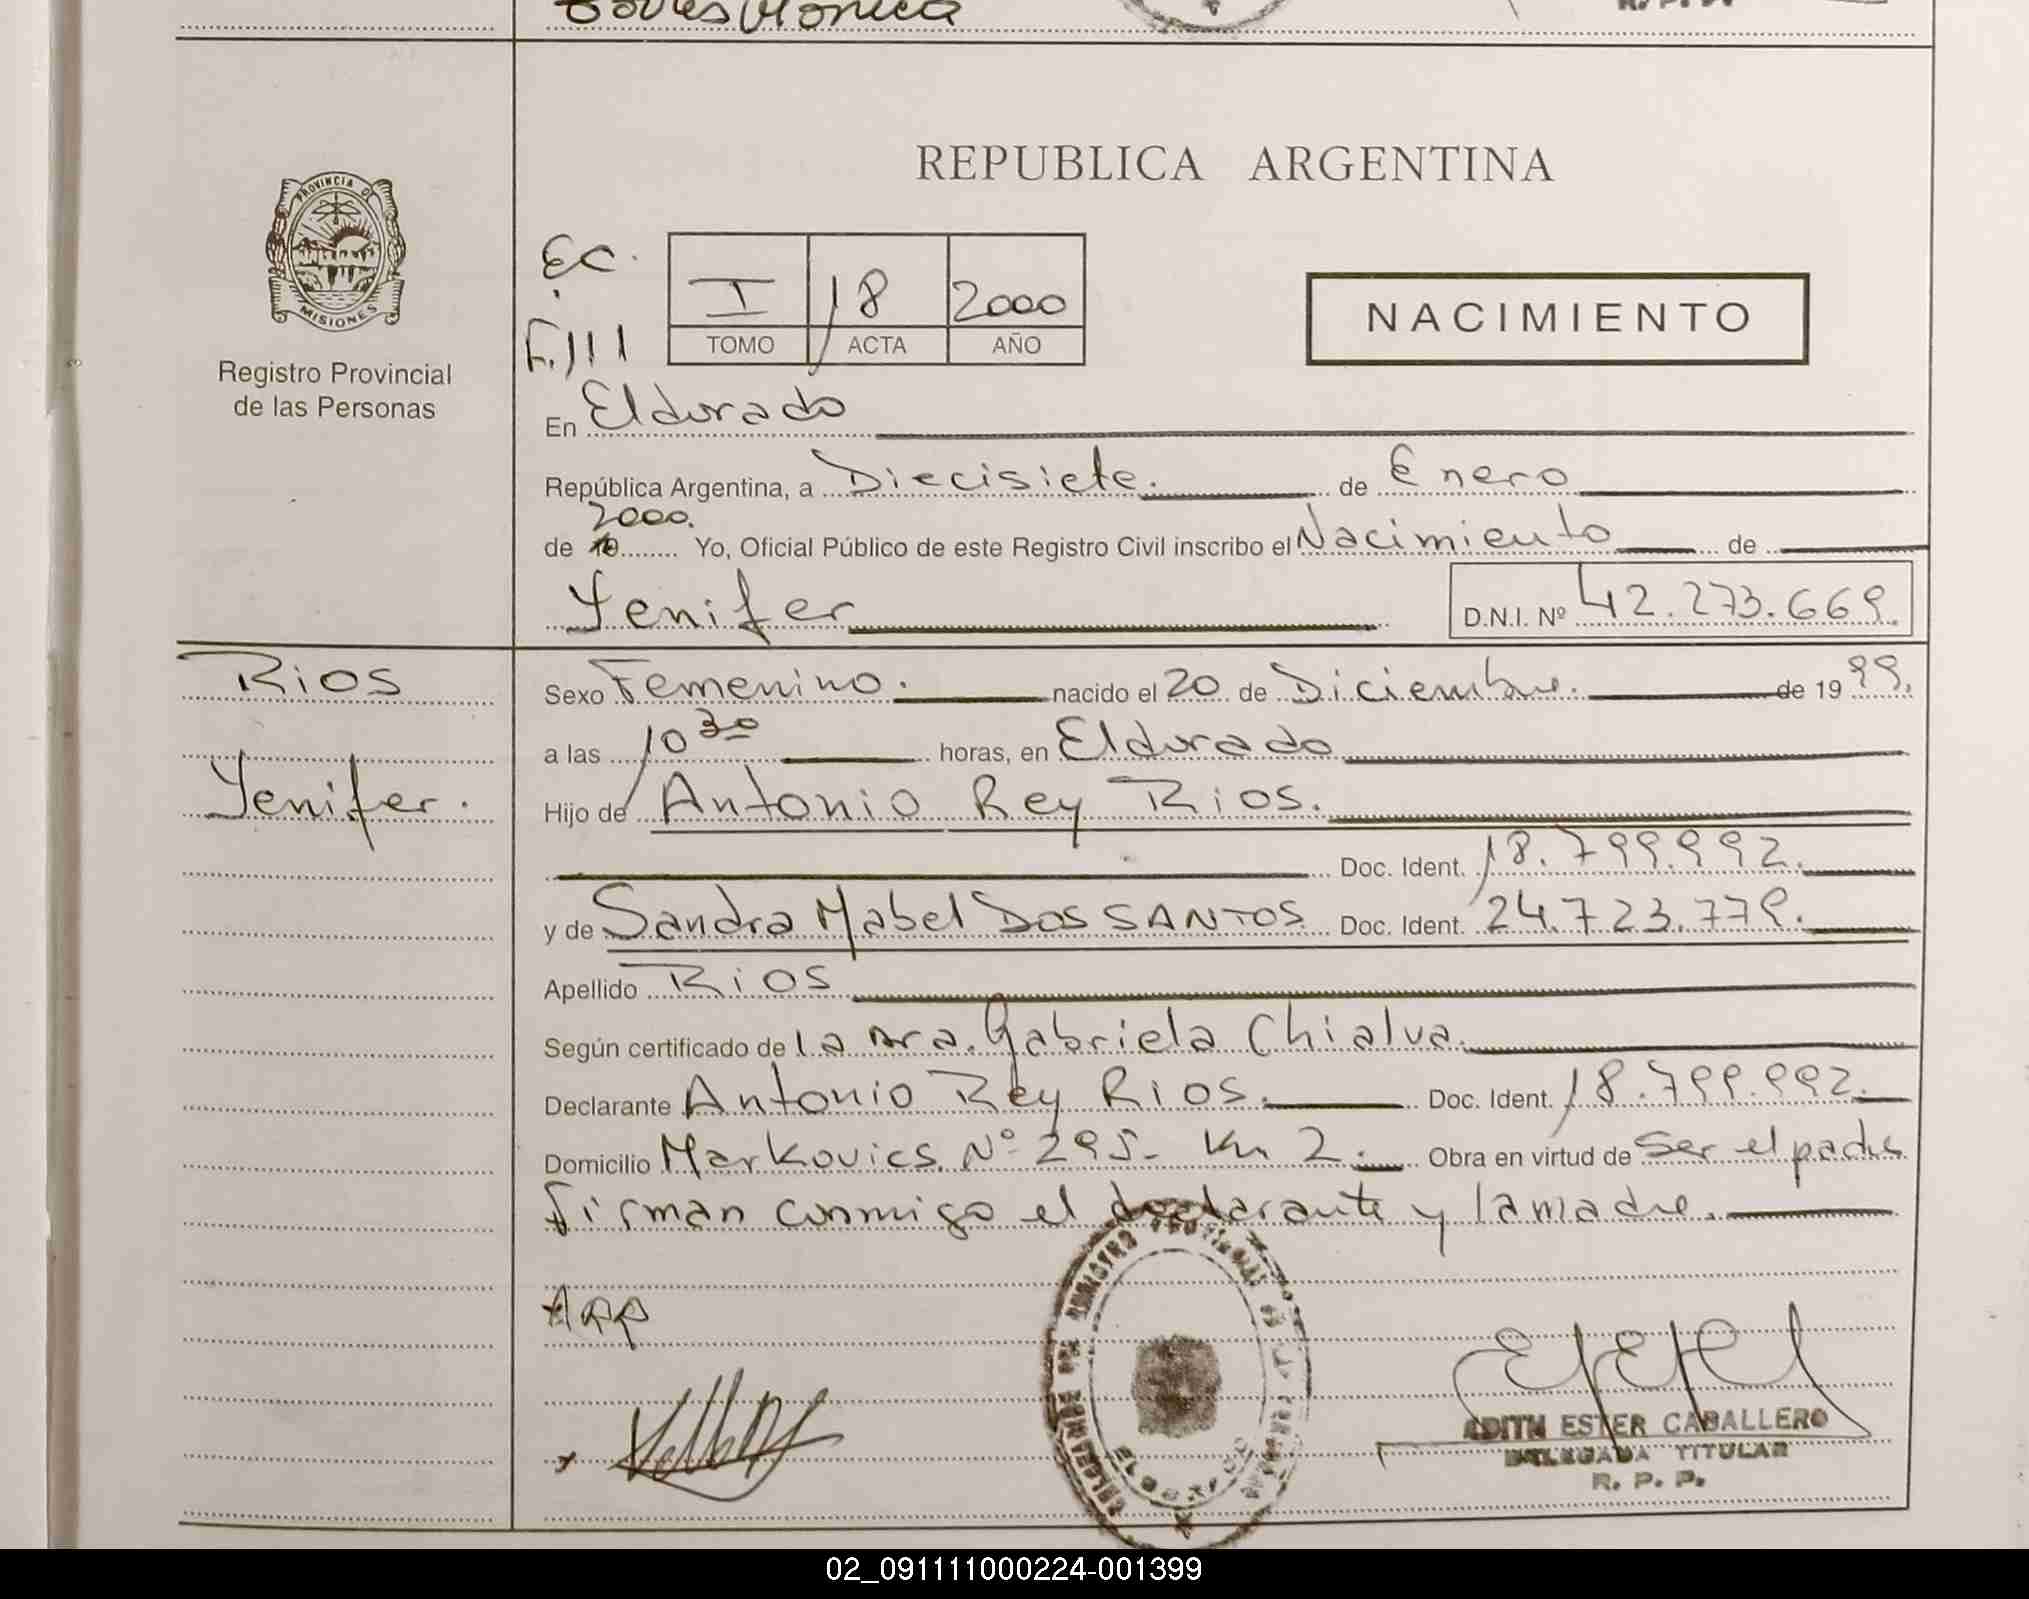 PROVINCIA DE
MISIONES
Registro Provincial
de las Personas
REPUBLICA ARGENTINA
E.C.
F. 111
I 18 2000
TOMO ACTA AÑO
NACIMIENTO
En Eldorado
República Argentina, a Diecisiete. de Enero
2000.
de Yo, Oficial Público de este Registro Civil inscribo el Nacimiento de
Yenifer D.N.I. Nº 42.273.669.
Rios
Yenifer.
Sexo Femenino. nacido el 20 de Diciembre. de 19 99.
a las 10 30 horas, en Eldorado
Hijo de Antonio Rey Rios.
Doc. Ident. 18.799.992.
y de Sandra Mabel Dos SANTOS Doc. Ident. 24.723.779.
Apellido Rios
Según certificado de la Dra. Gabriela Chialva.
Declarante Antonio Rey Rios. Doc. Ident. 18.799.992.
Domicilio Markovics. Nº 295- Km 2. Obra en virtud de Ser el padre
firman conmigo el declarante y la madre.
ARR
EDITH ESTER CABALLERO
DELEGADA TITULAR
R. P. P.
02_091111000224-001399